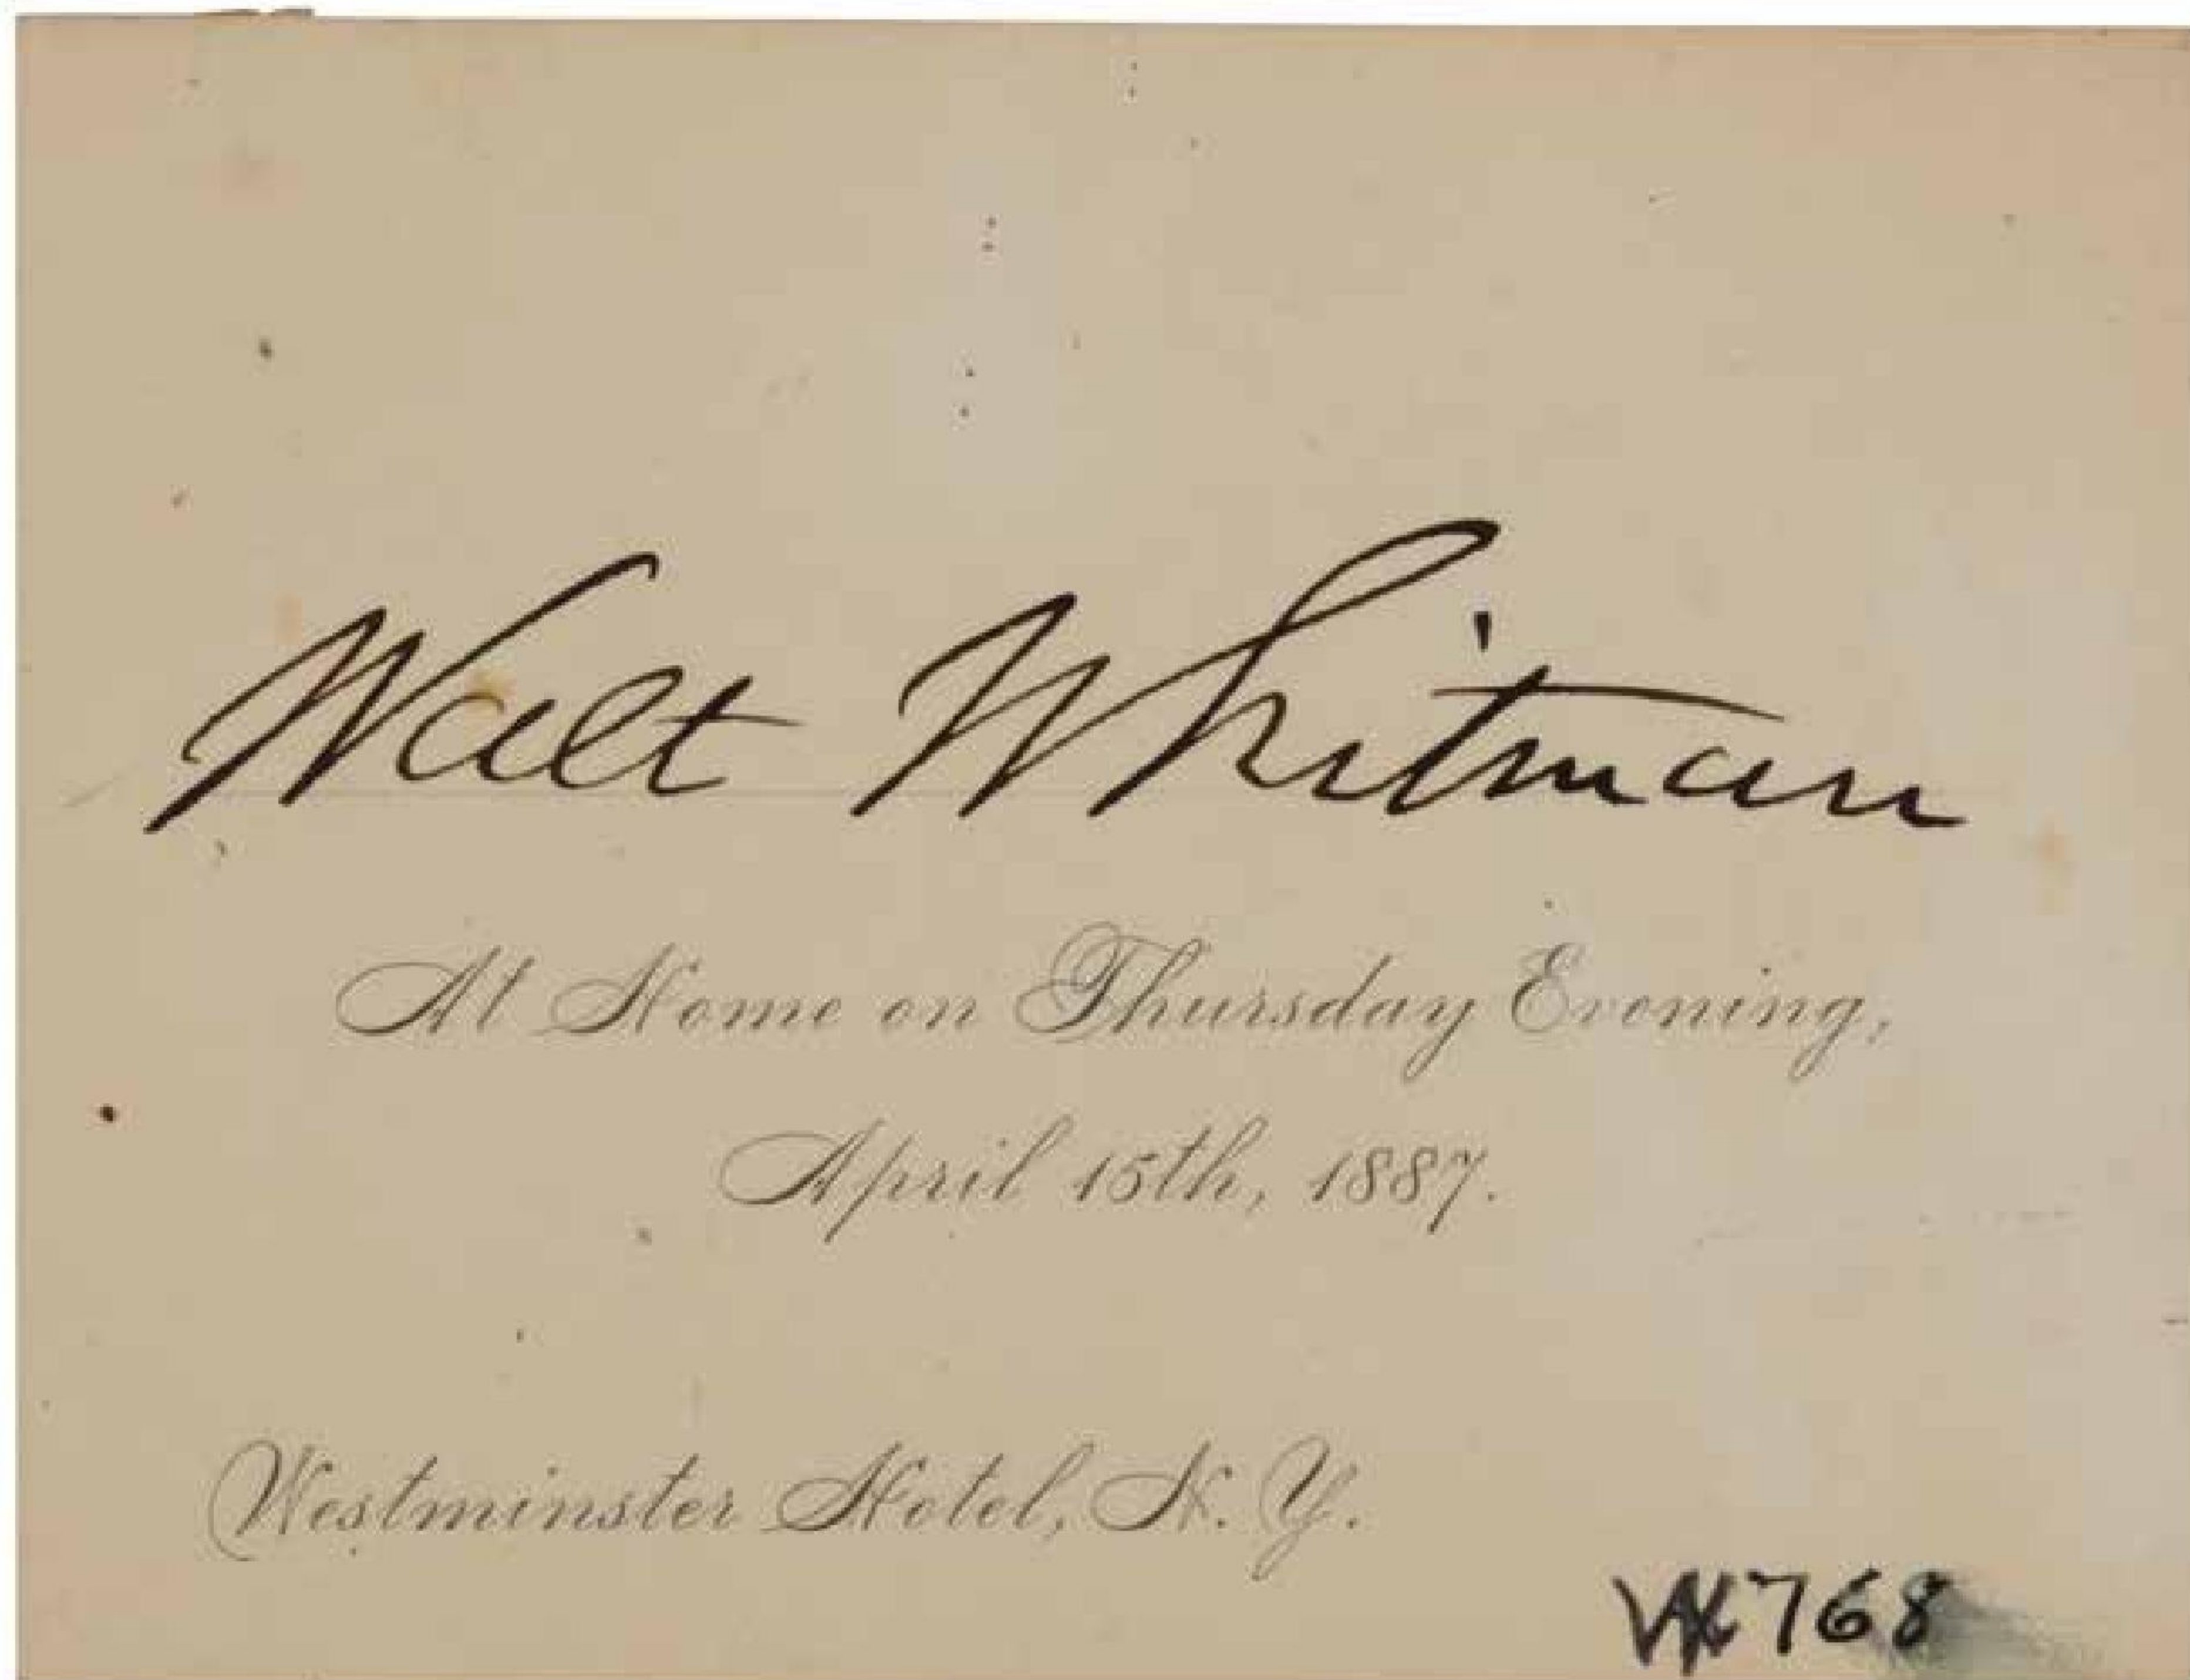 Walt Whitman
At Home on Thursday Evening,
April 15th, 1887.
Westminster Hotel, N. Y.
768